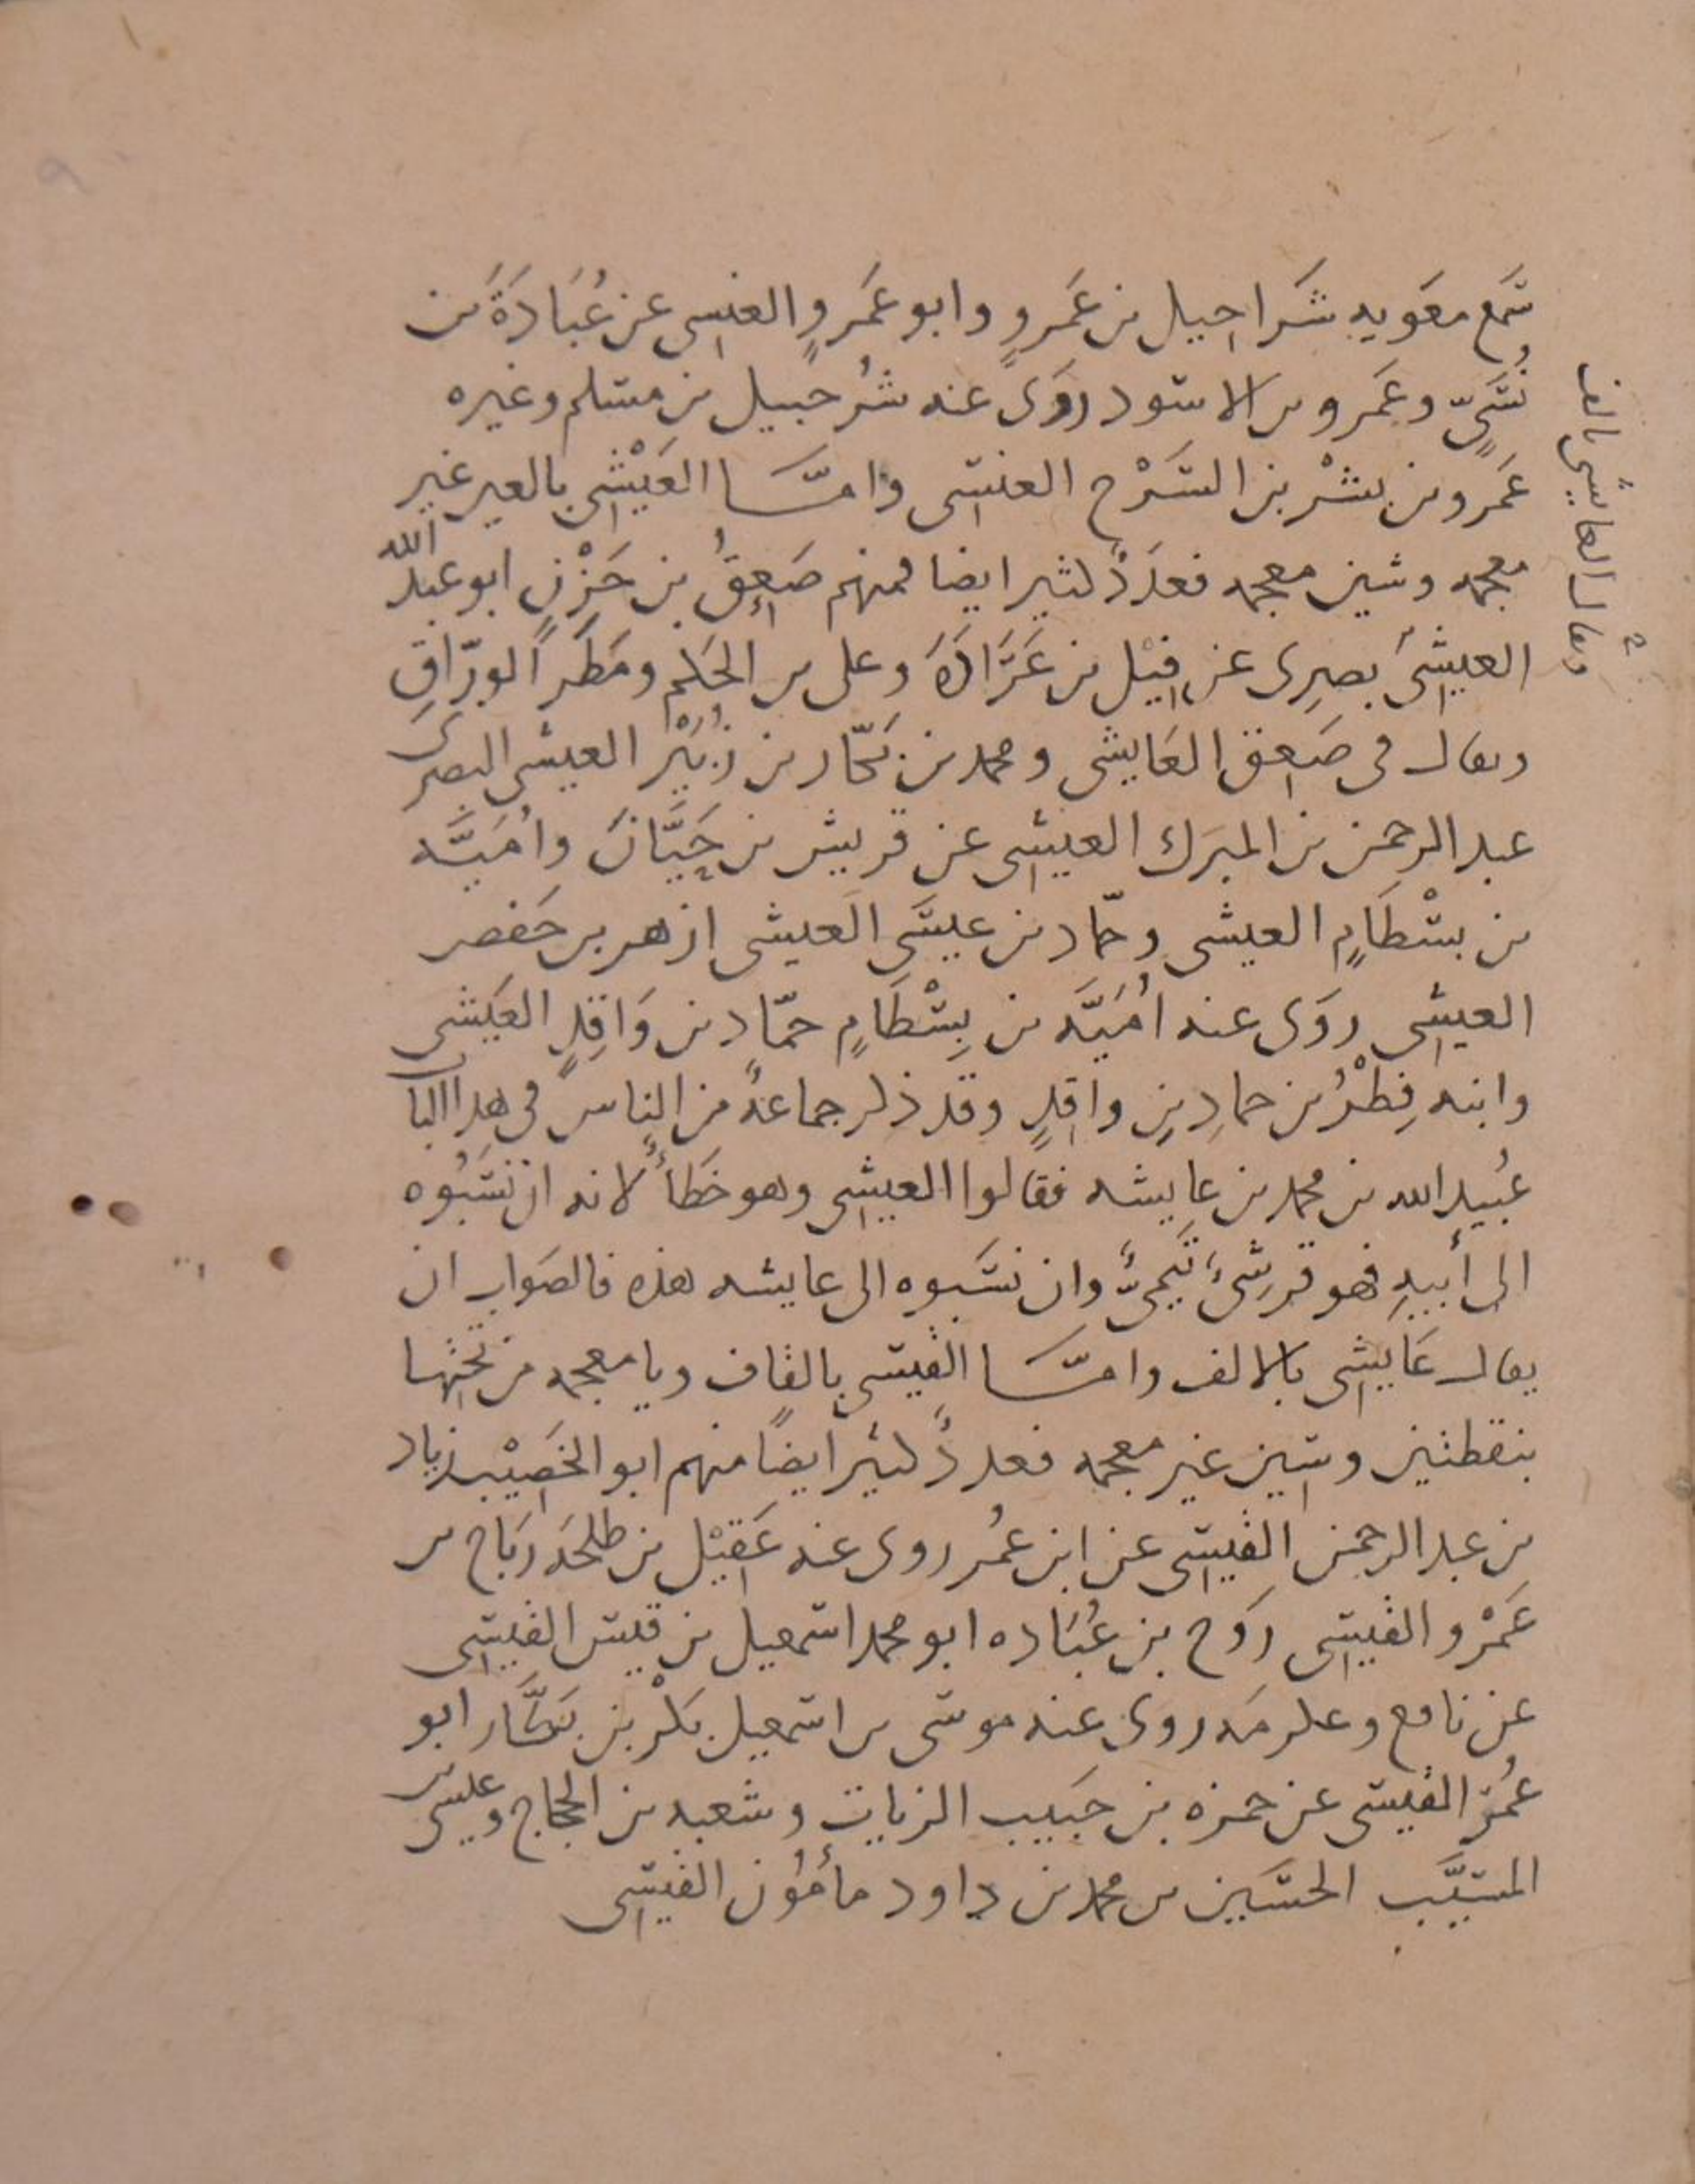 سَمع معَويه شَراحيل بن عَمرٍو وابو عَمرٍو العنسى عن عُبَادَةَ بن
نُسَىٍّ وعَمرو بن الاسود روَى عنه شُرحبيل بن مسلم وغيره
عَمرو بن بشْر بن السَرْح العنسى وامّا العَيْشى بالعين غير
معجمه وشين معجمه فعدَدٌ كثير ايضا فمنهم صَعِقُ بن حَزْنٍ ابو عبد الله
العيشىُ بصرِى عن فِيْل بن عَرَّادَةَ وعلى بن الحكم ومَطَرٍ الورّاقِ
ويقال فى صَعِق العَايشى ومحمد بن بكّار بن زُبَيْر العيشى البصرى
عبد الرحمن بن المبرَك العيشى عن قريش بن حَيَّانَ واُمَيَّه
بن بسْطَامٍ العيشى وحمّاد بن عيسَى العَيشى ازهر بن حَفص
العيشى روَى عنه اُمَيَّه بن بِسْطَامٍ حمّاد بن وَاقِدٍ العَيشى
وابنه فِطْرُ بن حمادِ بنِ واقِدٍ وقد ذكر جماعةٌ من الناس فى هذا الباب
عبُيد الله بن محمد بن عايشه فقالوا العيشى وهو خَطأٌ لانه ان نسَبُوه
الى أبيهِ فهو قرشىٌ تَيمىٌّ وان نسَبوه الى عايشه هذه فالصَواب ان
يقال عَايشى بالالف وامّا القيسى بالقاف ويا معجمه من تحتِها
بنقطتين وسين غير معجمه فعددٌ كثير ايضًا منهم ابو الخَصِيْب زياد
بن عبد الرحمن القيسى عن ابن عمُر روى عنه عَقِيْل بن طلحَه رَباح بن
عَمْرو القيسى رَوح بن عُبَاده ابو محمد اسمعيل بن قيس القيسى
عن نافع وعكرمَه روى عنه موسى بن اسمعيل بَكْر بن بَكَّار ابو
عمُر القيسى عن حمزه بن حَبيب الزيات وشعبه بن الحجاج وعيسى بن
المسيَّب الحسَين بن محمد بن داود مأمُون القيسى
ويقال العايشى بالف